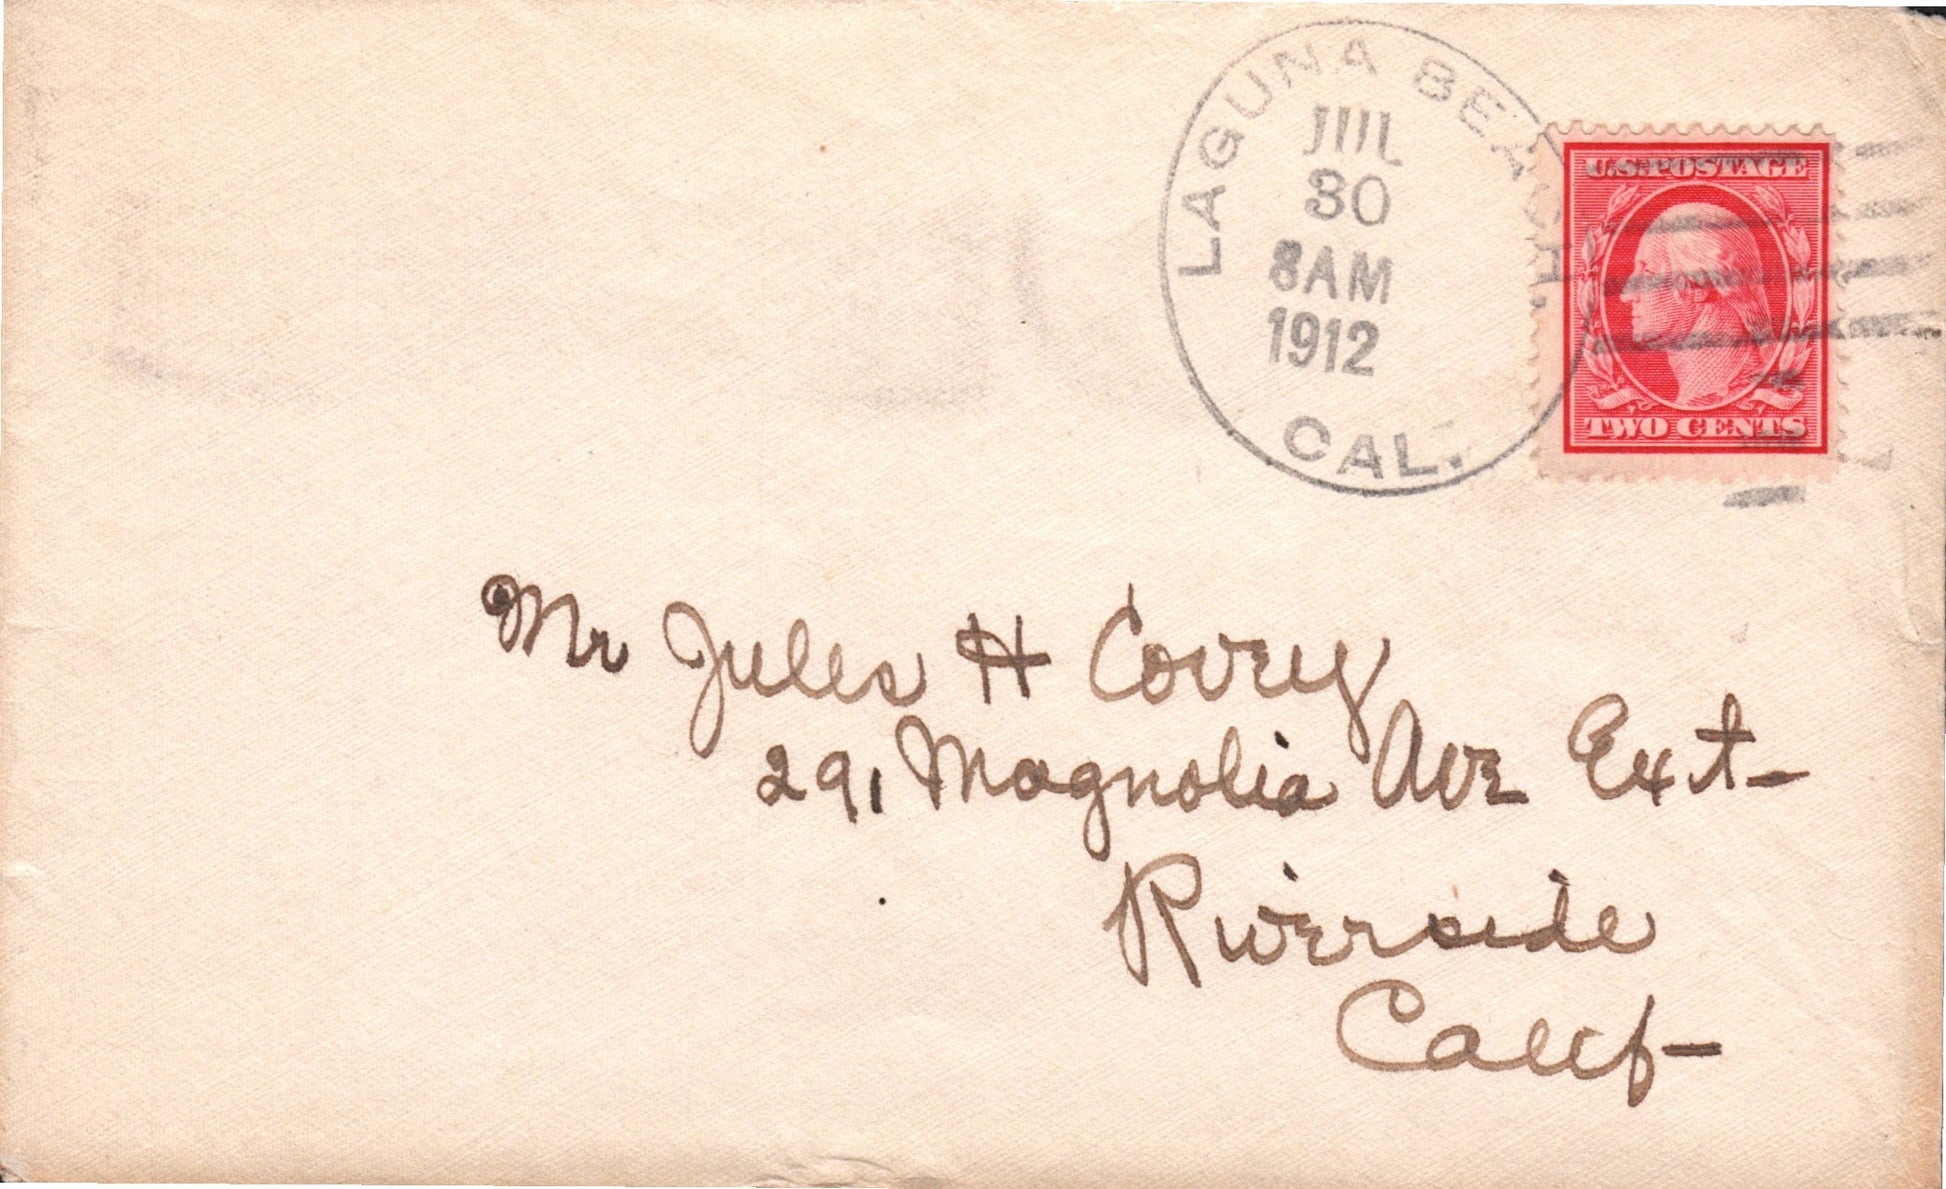 LAGUNA BEACH.
JUL
30
8AM
1912
CAL.
U.S. POSTAGE
TWO CENTS
Mr Jules H Covey
291 Magnolia Ave Ext-
Riverside
Calif-